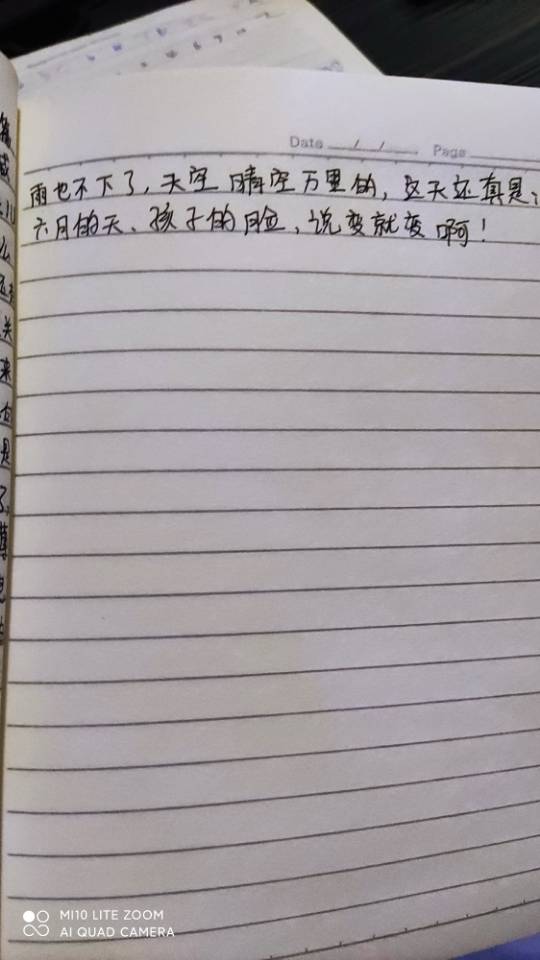 Date / / Page
雨也不下了，天空晴空万里的，这天还真是：
六月的天、孩子的脸，说变就变啊！
MI10 LITE ZOOM
AI QUAD CAMERA